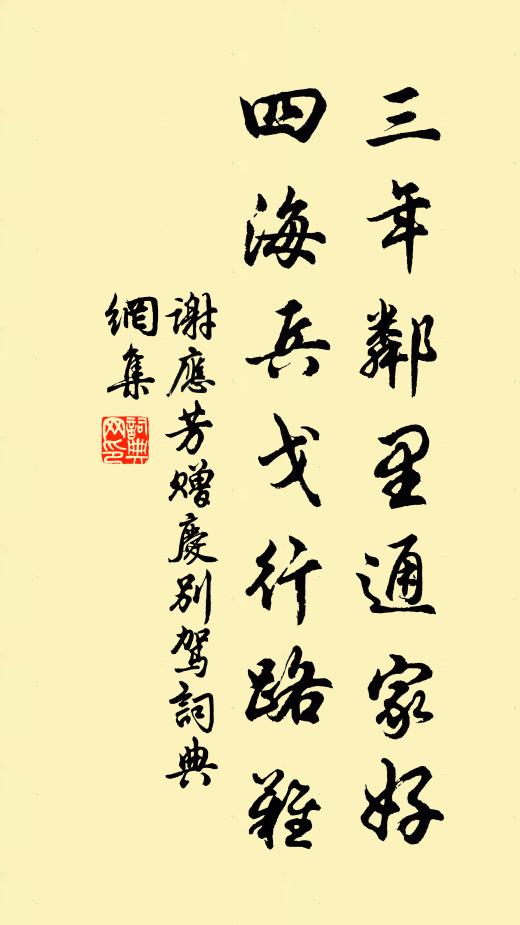 三年鄰里通家好
四海兵戈行路難
謝應芳贈慶別駕詞典
網集
詞典
网印